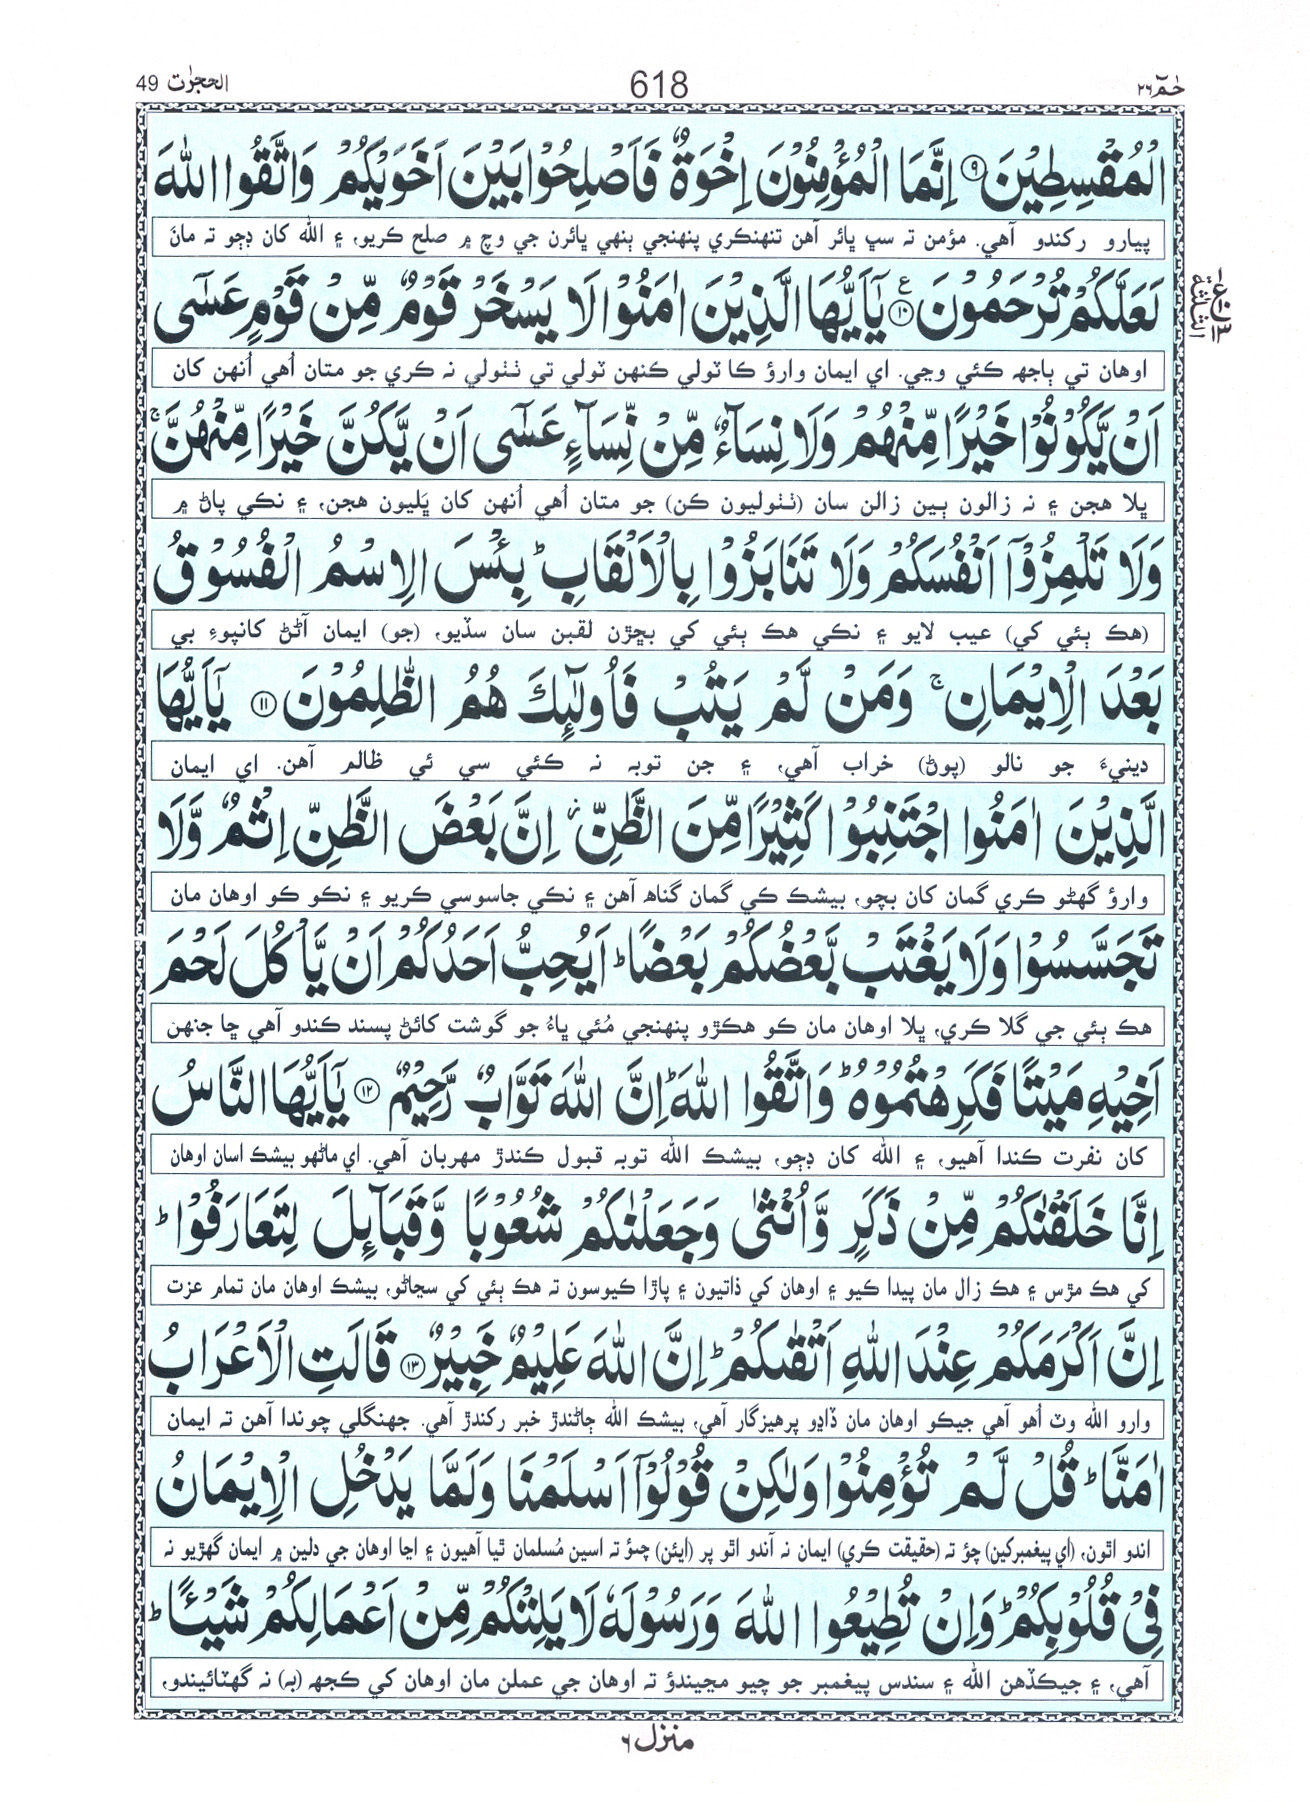 حٰمٓ ٢٦
618
الحجرٰت 49
الْمُقْسِطِيْنَ ٩ اِنَّمَا الْمُؤْمِنُوْنَ اِخْوَةٌ فَاَصْلِحُوْا بَيْنَ اَخَوَيْكُمْ وَاتَّقُوا اللّٰهَ
پيارو رکندو آهي. مؤمن تہ سڀ ڀائر آهن تنهنڪري پنهنجي ٻنهي ڀائرن جي وچ ۾ صلح ڪريو، ۽ الله کان ڊڄو تہ مانَ
لَعَلَّكُمْ تُرْحَمُوْنَ ١٠ ع يٰٓاَيُّهَا الَّذِيْنَ اٰمَنُوْا لَا يَسْخَرْ قَوْمٌ مِّنْ قَوْمٍ عَسٰٓى
اوهان تي ٻاجهہ ڪئي وڃي. اي ايمان وارؤ ڪا ٽولي ڪنهن ٽولي تي ٺٺولي نہ ڪري جو متان اُهي اُنهن کان
اَنْ يَّكُوْنُوْا خَيْرًا مِّنْهُمْ وَلَا نِسَآءٌ مِّنْ نِّسَآءٍ عَسٰٓى اَنْ يَّكُنَّ خَيْرًا مِّنْهُنَّ ۚ
ڀلا هجن ۽ نہ زالون ٻين زالن سان (ٺٺوليون ڪن) جو متان اُهي اُنهن کان ڀَليون هجن، ۽ نڪي پاڻ ۾
وَلَا تَلْمِزُوْٓا اَنْفُسَكُمْ وَلَا تَنَابَزُوْا بِالْاَلْقَابِ ؕ بِئْسَ الِاسْمُ الْفُسُوْقُ
(هڪ ٻئي کي) عيب لايو ۽ نڪي هڪ ٻئي کي بڇڙن لقبن سان سڏيو، (جو) ايمان آڻڻ کانپوءِ بي
بَعْدَ الْاِيْمَانِ ۚ وَمَنْ لَّمْ يَتُبْ فَاُولٰٓئِكَ هُمُ الظّٰلِمُوْنَ ١١ يٰٓاَيُّهَا
ديني‎ءَ جو نالو (پوڻ) خراب آهي، ۽ جن توبہ نہ ڪئي سي ئي ظالم آهن. اي ايمان
الَّذِيْنَ اٰمَنُوا اجْتَنِبُوْا كَثِيْرًا مِّنَ الظَّنِّ ؗ اِنَّ بَعْضَ الظَّنِّ اِثْمٌ وَّلَا
وارؤ گهڻو ڪري گمان کان بچو، بيشڪ ڪي گمان گناه آهن ۽ نڪي جاسوسي ڪريو ۽ نڪو ڪو اوهان مان
تَجَسَّسُوْا وَلَا يَغْتَبْ بَّعْضُكُمْ بَعْضًا ؕ اَيُحِبُّ اَحَدُكُمْ اَنْ يَّاْكُلَ لَحْمَ
هڪ ٻئي جي گلا ڪري، ڀلا اوهان مان ڪو هڪڙو پنهنجي مُئي ڀاءُ جو گوشت کائڻ پسند ڪندو آهي ڇا جنهن
اَخِيْهِ مَيْتًا فَكَرِهْتُمُوْهُ ؕ وَاتَّقُوا اللّٰهَ ؕ اِنَّ اللّٰهَ تَوَّابٌ رَّحِيْمٌ ١٢ يٰٓاَيُّهَا النَّاسُ
کان نفرت ڪندا آهيو، ۽ الله کان ڊڄو، بيشڪ الله توبہ قبول ڪندڙ مهربان آهي. اي ماڻهو بيشڪ اسان اوهان
اِنَّا خَلَقْنٰكُمْ مِّنْ ذَكَرٍ وَّاُنْثٰى وَجَعَلْنٰكُمْ شُعُوْبًا وَّقَبَآئِلَ لِتَعَارَفُوْا ؕ
کي هڪ مڙس ۽ هڪ زال مان پيدا ڪيو ۽ اوهان کي ذاتيون ۽ پاڙا ڪيوسون تہ هڪ ٻئي کي سڃاڻو، بيشڪ اوهان مان تمام عزت
اِنَّ اَكْرَمَكُمْ عِنْدَ اللّٰهِ اَتْقٰىكُمْ ؕ اِنَّ اللّٰهَ عَلِيْمٌ خَبِيْرٌ ١٣ قَالَتِ الْاَعْرَابُ
وارو الله وٽ اُهو آهي جيڪو اوهان مان ڏاڍو پرهيزگار آهي، بيشڪ الله ڄاڻندڙ خبر رکندڙ آهي. جهنگلي چوندا آهن تہ ايمان
اٰمَنَّا ؕ قُلْ لَّمْ تُؤْمِنُوْا وَلٰكِنْ قُوْلُوْٓا اَسْلَمْنَا وَلَمَّا يَدْخُلِ الْاِيْمَانُ
آندو اٿون، (اي پيغمبر کين) چؤ تہ (حقيقت ڪري) ايمان نہ آندو اٿو پر (ايئن) چئو تہ اسين مُسلمان ٿيا آهيون ۽ اڃا اوهان جي دلين ۾ ايمان گهڙيو نہ
فِيْ قُلُوْبِكُمْ ؕ وَاِنْ تُطِيْعُوا اللّٰهَ وَرَسُوْلَهٗ لَا يَلِتْكُمْ مِّنْ اَعْمَالِكُمْ شَيْـًٔا ؕ
آهي، ۽ جيڪڏهن الله ۽ سندس پيغمبر جو چيو مڃيندؤ تہ اوهان جي عملن مان اوهان کي ڪجهہ (بہ) نہ گهٽائيندو،
منزل ٦